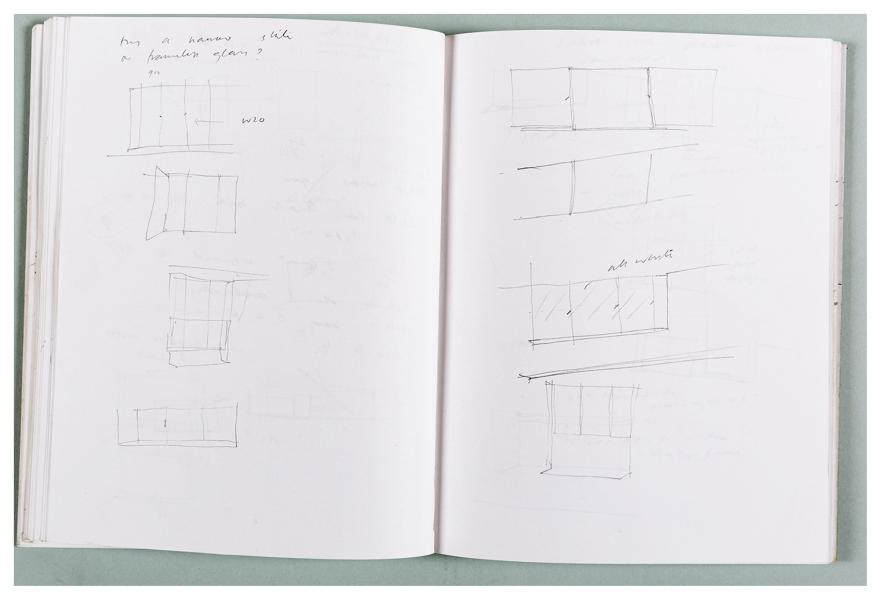 try a narrow stile
or frameless glass?
W20
all white